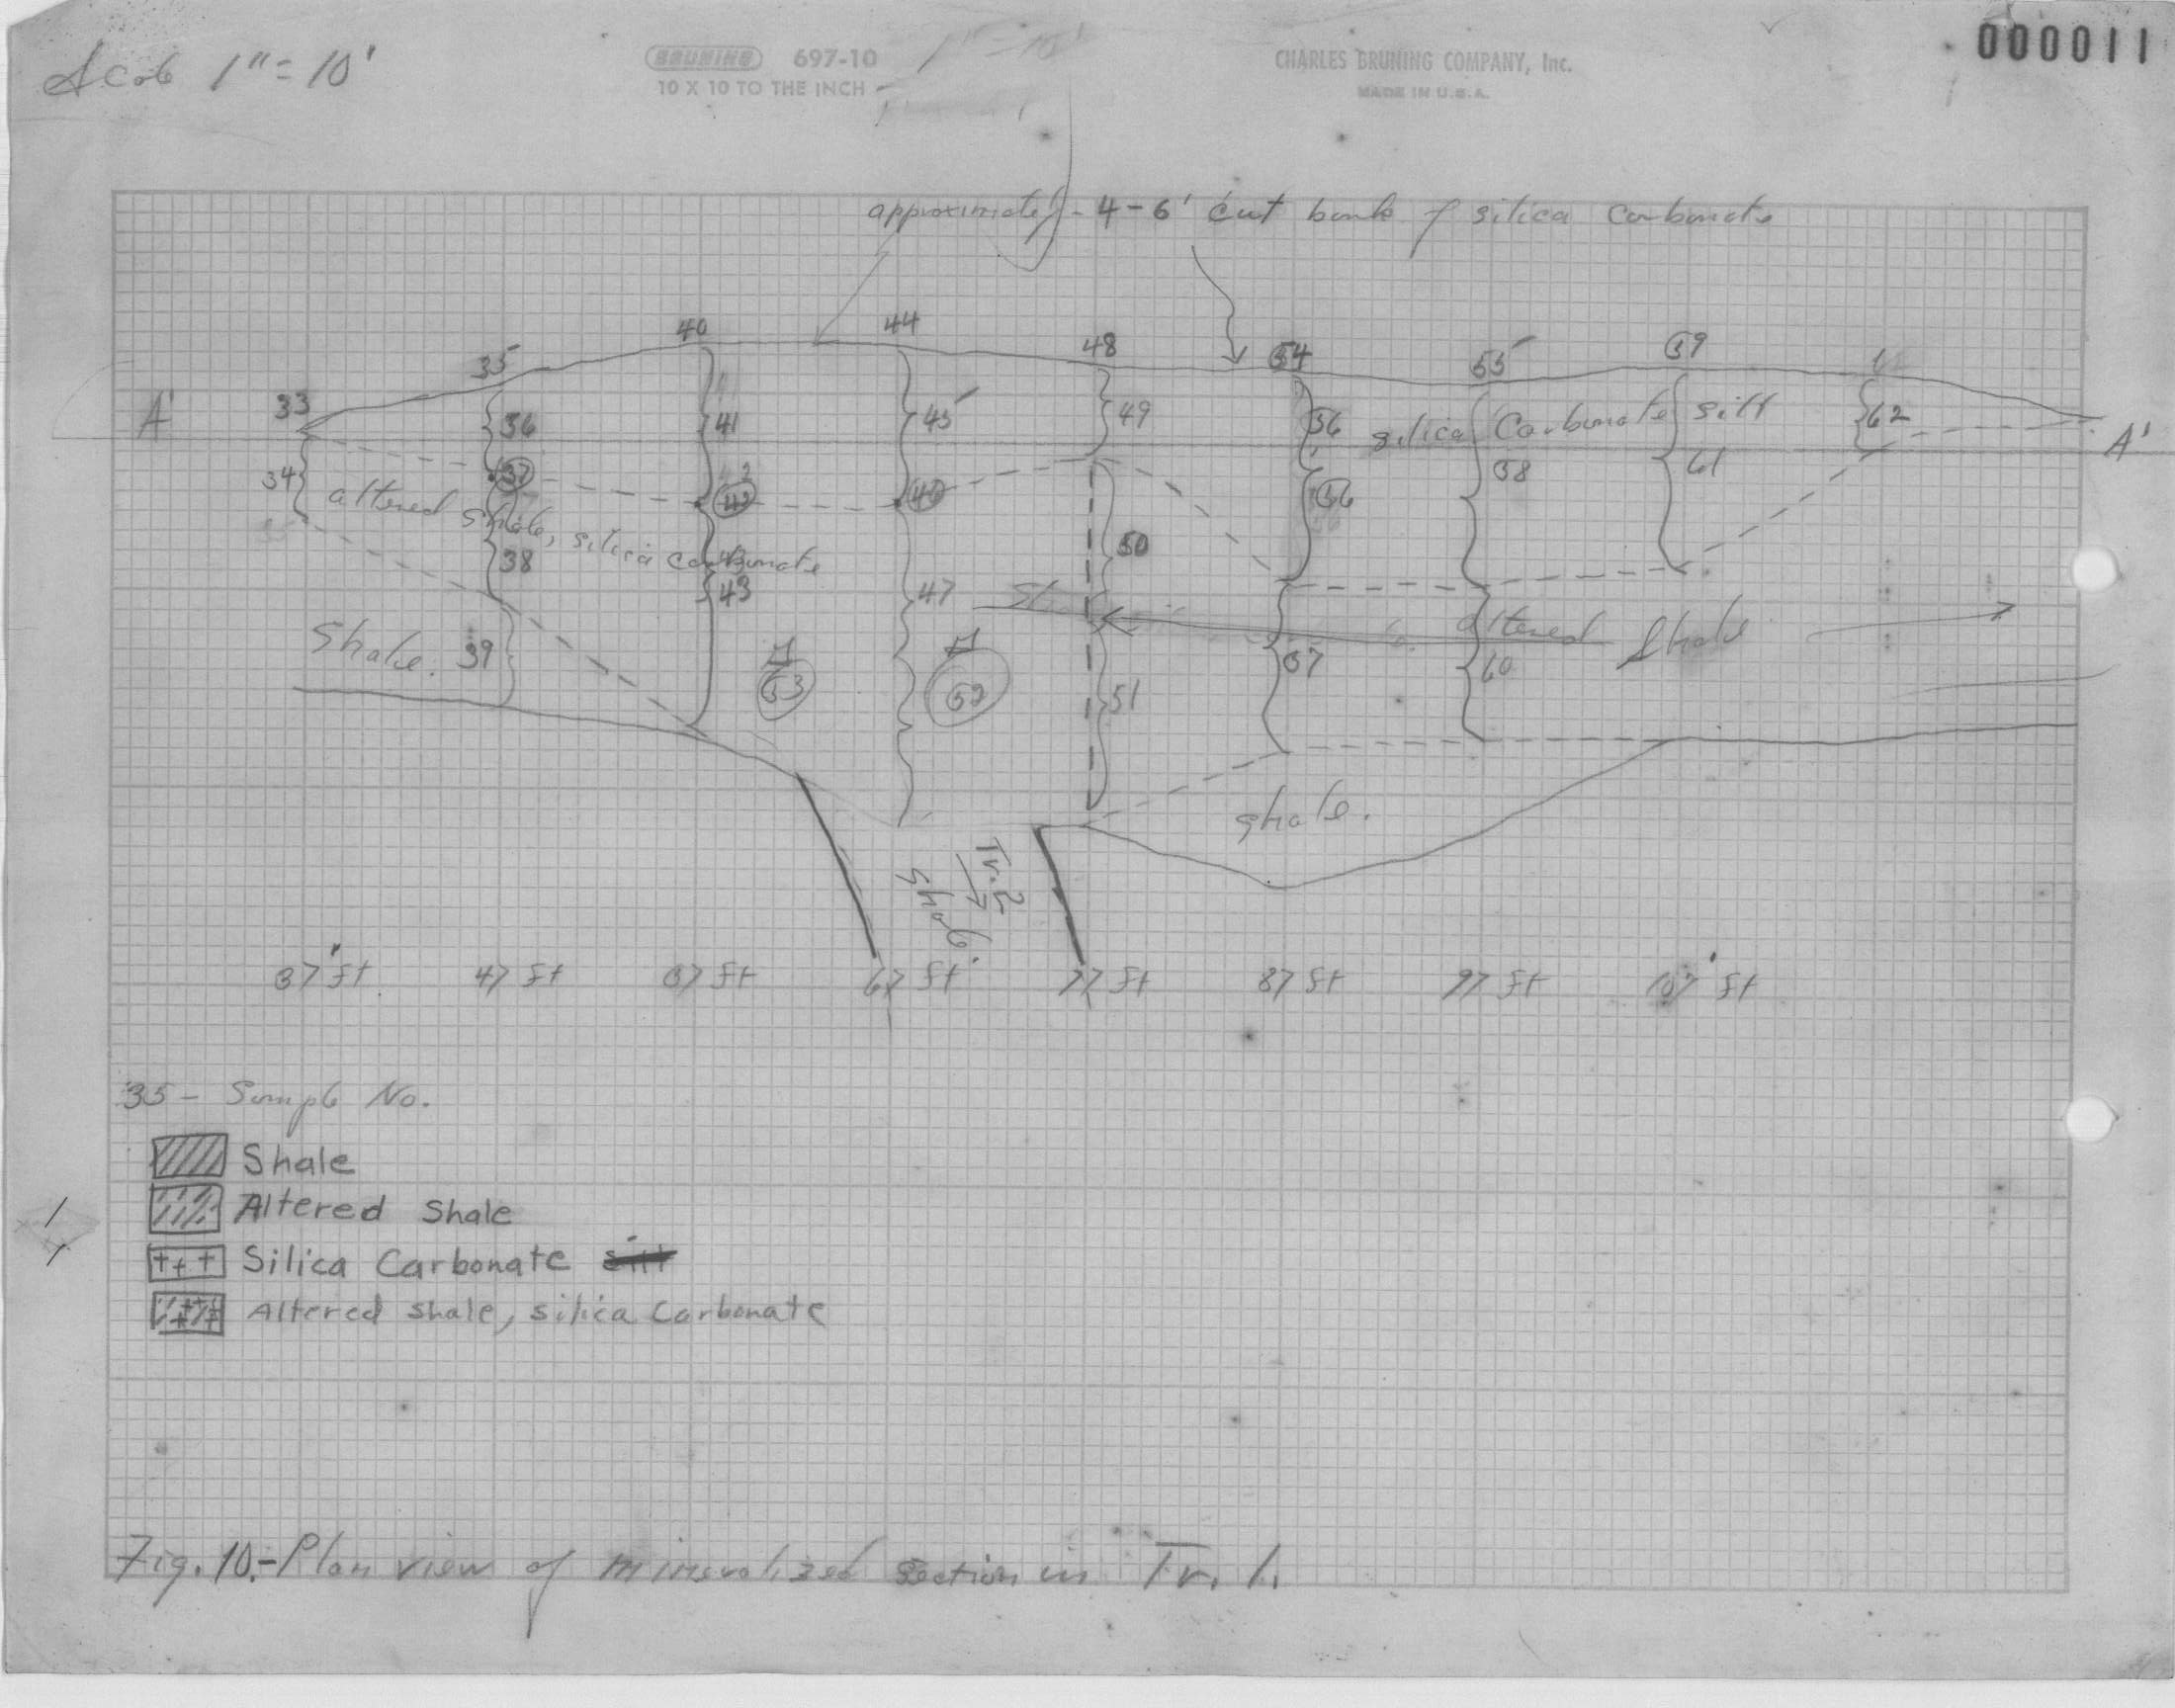 000011
Scale 1" = 10'
BRUNING 697-10
10 X 10 TO THE INCH
1" = 10'
CHARLES BRUNING COMPANY, Inc.
MADE IN U.S.A.
approximately - 4-6' cut bank of silica carbonate
33 35 40 44 48 54 55 59
A' A'
34 36 41 45 49 56 62
silica Carbonate sill
37 42 46 56 58 61
altered shale, silica carbonate
38 43 47 50
altered Shale
Shale. 39 53 52 51 57 60
shale.
Tr. 2
Shale
37' ft. 47 ft 57 ft 67 ft 77 ft 87 ft 97 ft 107 ft
35 - Sample No.
Shale
Altered Shale
Silica Carbonate sill
Altered shale, silica Carbonate
Fig. 10.- Plan view of mineralized section in Tr. 1.